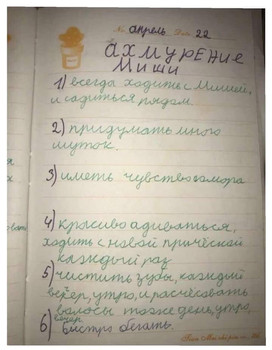 № апрель Дата 22
ахмурение
Миши
1) всегда ходить с Мишей,
и садиться рядом
2) придумать много
шуток.
3) иметь чувство юмора
4) красиво адиваться,
ходить с новой причёской
каждый раз
5) чистить зубы, каждий
вечер, утро, и расчёсовать
волосы тоже день, утро,
вечер
6) Быстро бегать.